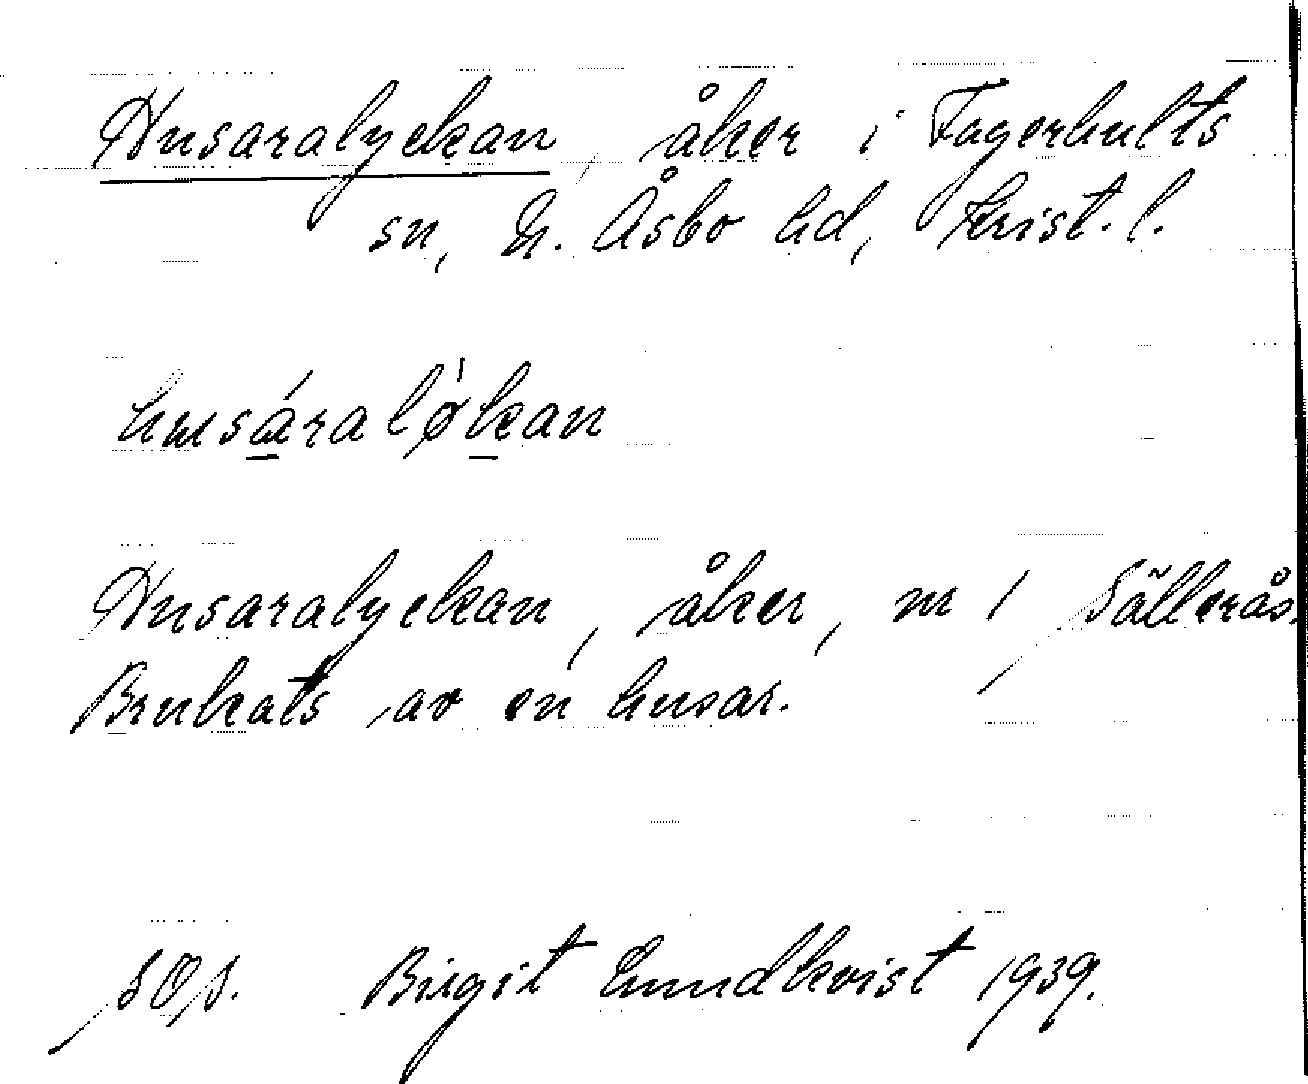 Husaralyckan, åker i Fagerhults
sn, N. Åsbo hd, Krist. l.
husáraløkan
Husaralyckan, åker, m 1 Sällerås.
Brukats av en husar.
Birgit Lundkvist 1939.